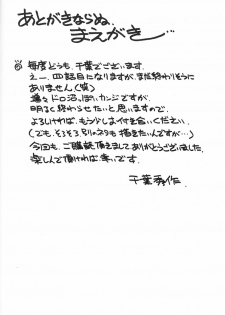 あとがきならぬ、
まえがき…
毎度どうも、千葉でございます。
えー、四話目になりますが、まだ終わりそうに
ありません(笑)
段々ドロ沼っぽいカンジですが、
明るく終わらせたいと思いますので、
よろしければ、もう少しおつき合いください。
(でも、そろそろ別のネタも描きたいんですが…)
今回も、ご購読頂きましてありがとうございました。
楽しんで頂ければ幸いです。
千葉秀作